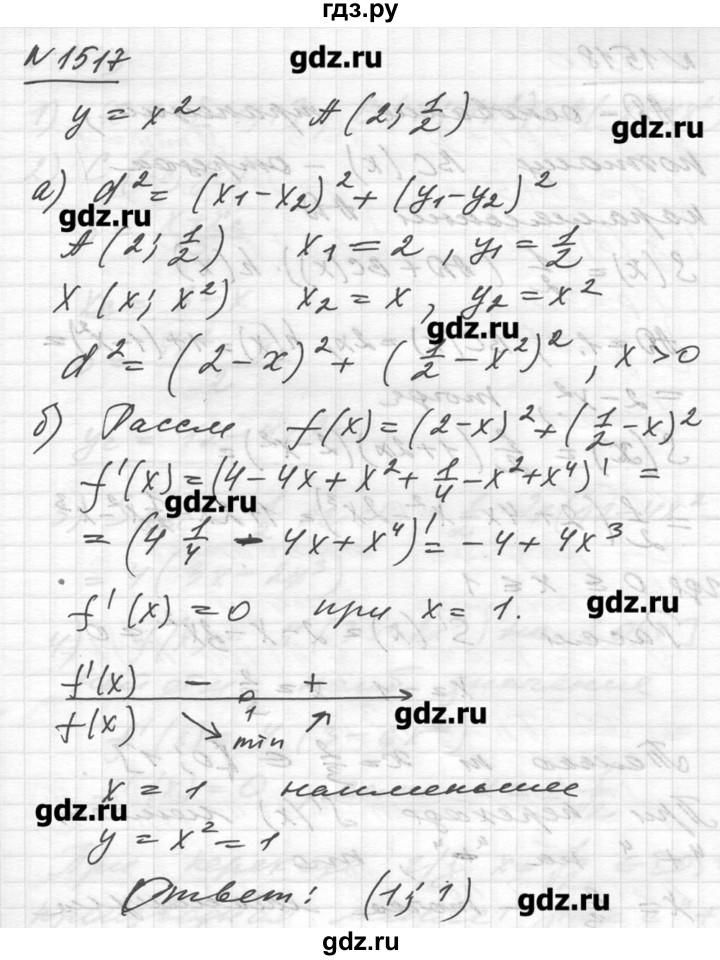 гдз.ру
N 1517
gdz.ru
y = x²   A (2; 1/2)
gdz.ru
а) d² = (x₁ - x₂)² + (y₁ - y₂)²
gdz.ru
A (2; 1/2)   x₁ = 2, y₁ = 1/2
X (x; x²)   x₂ = x, y₂ = x²
gdz.ru
d² = (2 - x)² + (1/2 - x²)², x > 0
б) Рассм f(x) = (2 - x)² + (1/2 - x)²
f'(x) = (4 - 4x + x² + 1/4 - x² + x⁴)' =
gdz.ru
= (4 1/4 - 4x + x⁴)' = -4 + 4x³
f'(x) = 0 при x = 1.
gdz.ru
f'(x)   -   +
1
f(x)   ↘ min ↗
gdz.ru
x = 1   наименьшее
gdz.ru
y = x² = 1
Ответ: (1; 1)
gdz.ru
gdz.ru